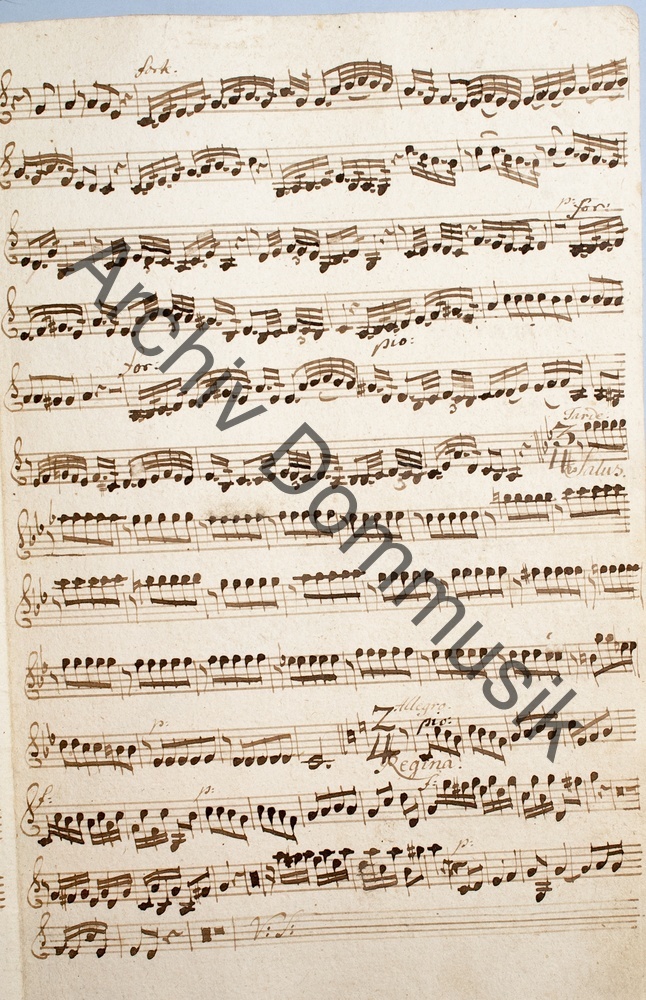 fork.
p: for:
pio:
for:
Tarde.
3
4 Salus.
Allegro.
p: pio:
3
4 Regina.
f: p: f:
p:
V: S:
Archiv Dommusik